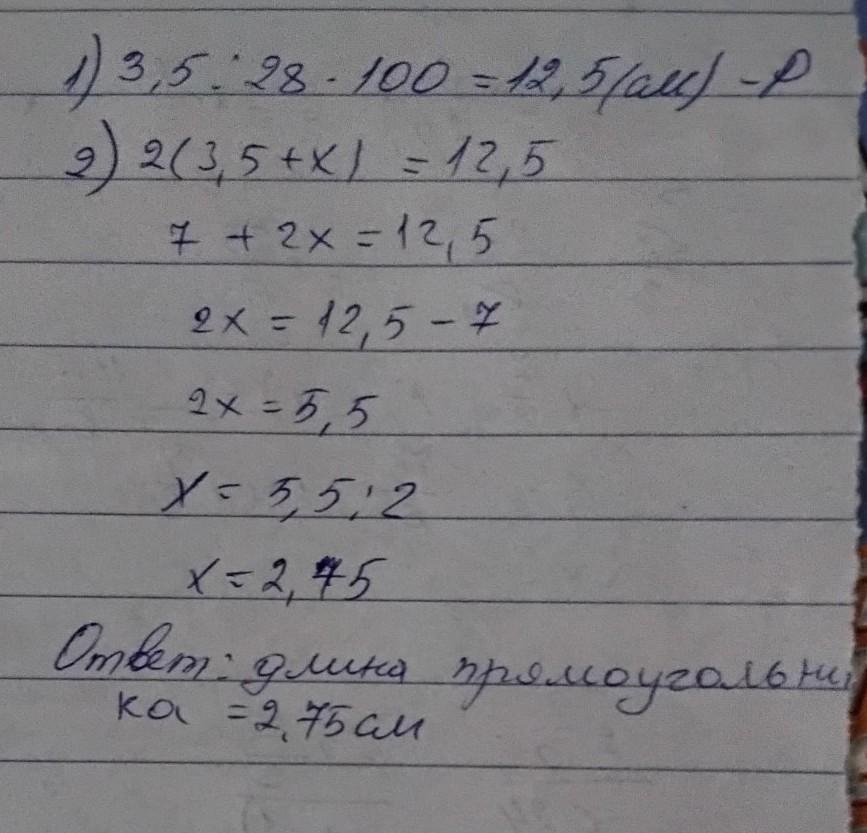 1) 3,5 : 28 · 100 = 12,5 (см) - P
2) 2(3,5 + x) = 12,5
7 + 2x = 12,5
2x = 12,5 - 7
2x = 5,5
x = 5,5 : 2
x = 2,75
Ответ: длина прямоугольни
ка = 2,75 см